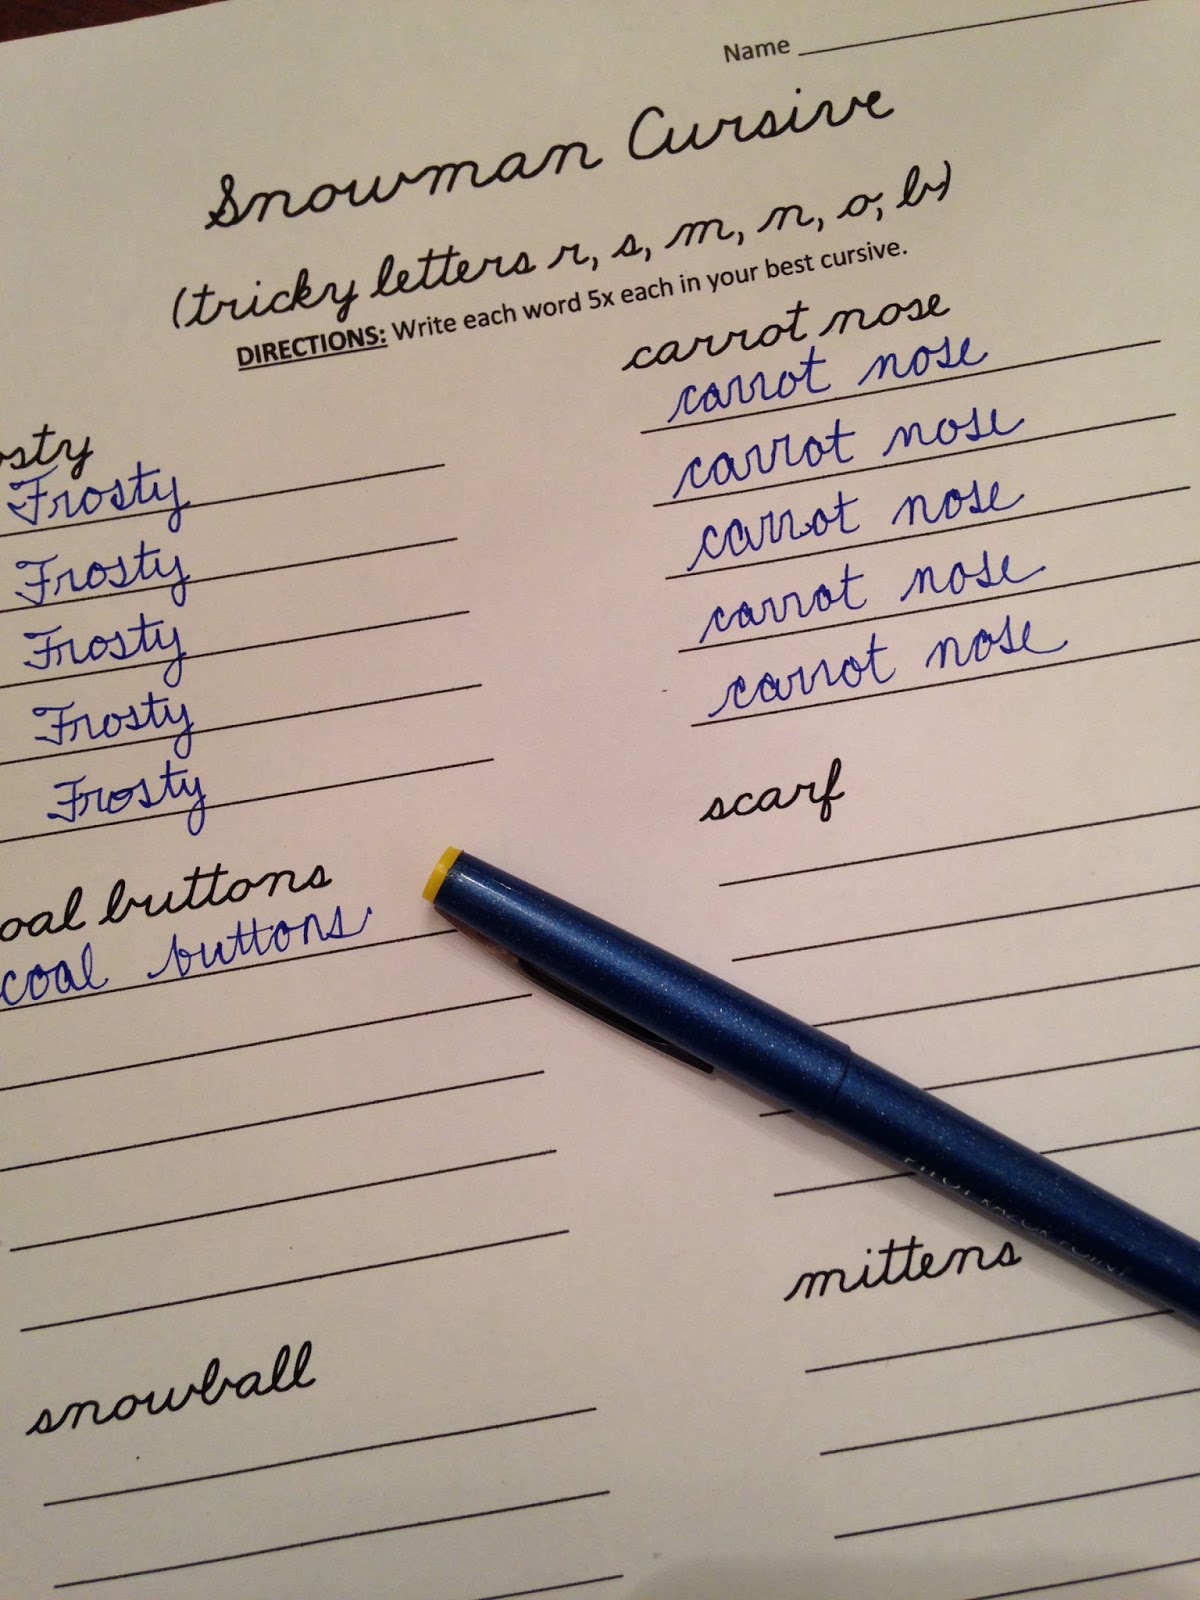 Name
Snowman Cursive
(tricky letters r, s, m, n, o, b)
DIRECTIONS: Write each word 5x each in your best cursive.
osty
Frosty
Frosty
Frosty
Frosty
Frosty
oal buttons
coal buttons
snowball
carrot nose
carrot nose
carrot nose
carrot nose
carrot nose
carrot nose
scarf
mittens
PILOT RAZOR POINT